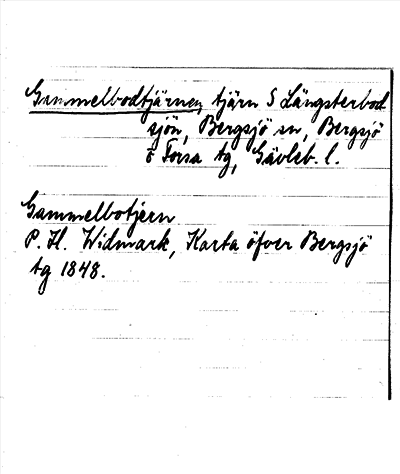 Gammelbodtjärnen, tjärn S Långsterbod
sjön, Bergsjö sn, Bergsjö
o Forsa tg, Gävleb. l.
Gammelbotjern
P. H. Widmark, Karta öfver Bergsjö
tg 1848.